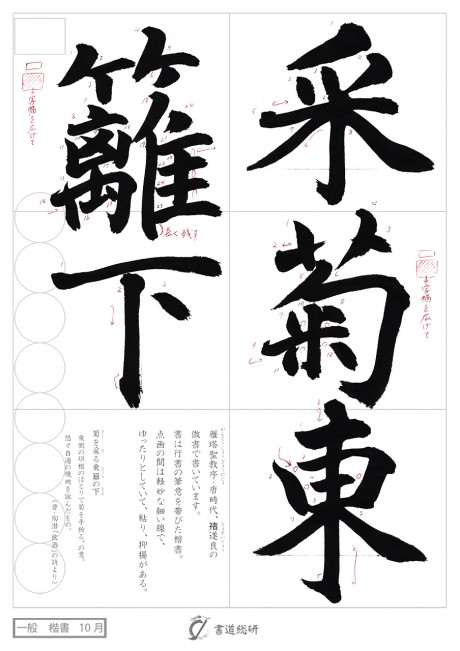 采菊東
籬下
字幅を広げて
字幅を広げて
長く残す
雁塔聖教序・唐時代、褚遂良の
倣書で書いています。
書は行書の筆意を帯びた楷書。
点画の間は軽妙な細い線で、
ゆったりとしていて、粘り、抑揚がある。
菊を采る東籬の下
東側の垣根のほとりで菊を手折る、の意。
悠々自適の境地を詠んだもの。
(晋・陶潜「飲酒」の詩より)
一般 楷書 10月
書道総研